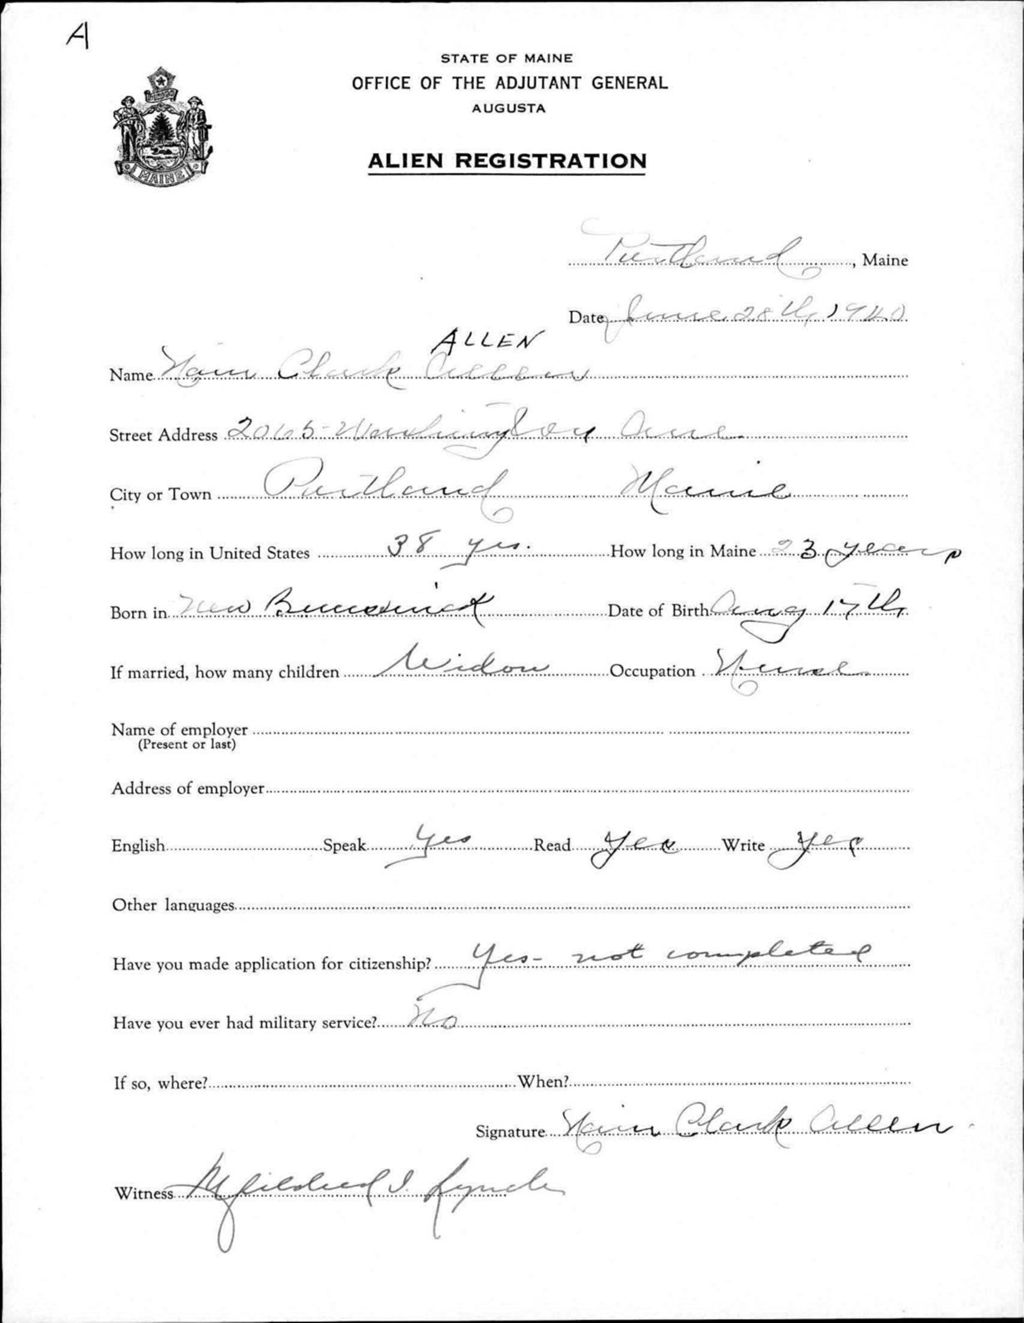 A
STATE OF MAINE
OFFICE OF THE ADJUTANT GENERAL
AUGUSTA
MAINE
ALIEN REGISTRATION
Portland, Maine
Date June 28th, 1940
ALLEN
Name Clark Allen
Street Address 2065 Washington Ave.
City or Town Portland Maine
How long in United States 38 yrs. How long in Maine 23 years
Born in New Brunswick Date of Birth Aug 17th
If married, how many children Widow Occupation Nurse
Name of employer
(Present or last)
Address of employer
English Speak Yes Read Yes Write Yes
Other languages
Have you made application for citizenship? Yes - not completed
Have you ever had military service? No
If so, where? When?
Signature Clark Allen
Witness Mildred I. Lynch